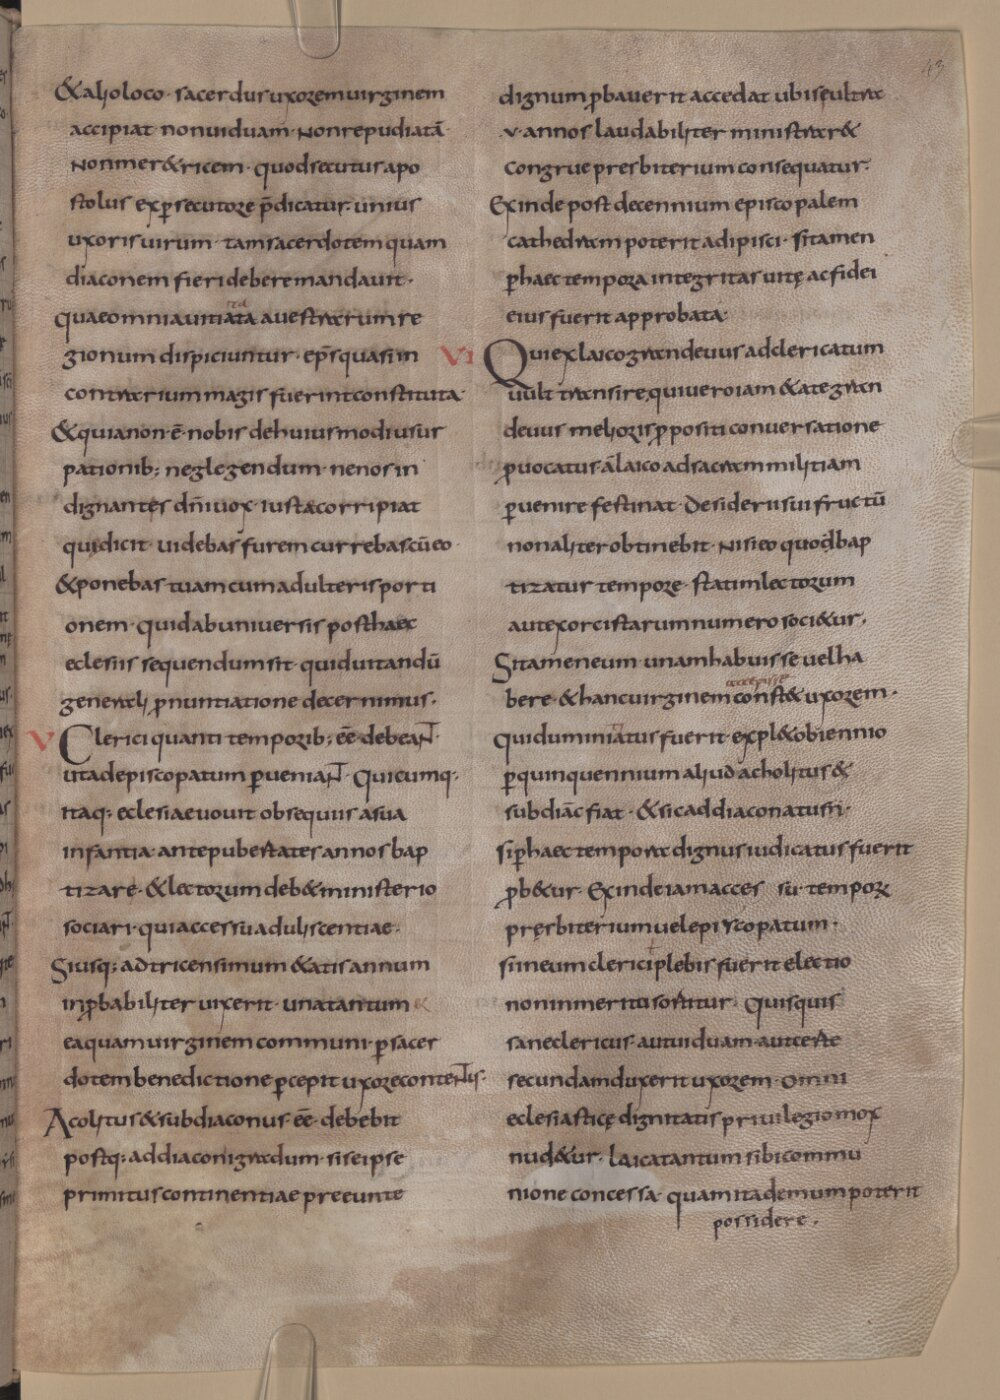 43
& alio loco · sacerdus uxorem uirginem
accipiat · non uiduam · Non repudiatā
Non mer&ricem · quod secutus apo
stolus ex p̱secutore p̄dicatur · unius
uxoris uirum · tam sacerdotem quam
diaconem fieri debere mandauit ·
quae omnia ut ista a uestrarum re
gionum dispiciuntur · ep̄s quasi in
contrarium magis fuerint constituta ·
& quia non · ē · nobis de huiusmodi usur
pationib; neglegendum · ne nos in
dignantes dn̄i uox · Iusta corripiat
qui dicit · uidebas furem currebas cū eo ·
& ponebas tuam cum adulteris porti
onem · quid ab uniuersis posthaec
eclesiis sequendum sit · quid uitandū
generali p̱nuntiatione decernimus ·
V Clerici quanti temporib; eē · debeaNT ·
ut ad episcopatum p̱ueniaNT · Quicumq;
itaq; eclesiae uouit obsequiis a sua
infantia · ante pubertates annos bap
tizare · & lectorum deb& ministerio
sociari · qui accessu aduliscentiae ·
Siusq; ad tricensimum &atis annum
inp̱babiliter uixerit · una tantum
ea quam uirginem communi · p̱ sacer
dotem benedictione p̱cepit uxore conteNTus ·
Acolitus & subdiaconus · eē · debebit
postq; ad diaconi gradum · si se ipse
primitus continentiae preeunte
dignum p̱bauerit accedat ubi se ultra
·v· annos laudabiliter ministrar&
congrue presbiterium consequatur ·
Exinde post decennium episcopalem
cathedram poterit adipisci · si tamen
p̱ haec tempora integritas uitę ac fidei
eius fuerit approbata ·
VI Qui ex laico grandeuus ad clericatum
uult transire, qui uero iam &ate gran
deuus melioris p̱positi conuersatione
p̱uocatus · ā laico ad sacram militiam
p̱uenire festinat · desiderii sui fructū
non aliter obtinebit · Nisi eo quo d bap
tizatur tempore · statim lectorum
aut exorcistarum numero soci&ur,
Si tamen eum · unam habuisse uel ha
accepisse
bere · & hanc uirginem const& uxorem ·
qui dum initiatus fuerit · expl&o biennio
p̱ quinquennium aliud acholitus &
subdiāc fiat · & sic ad diaconatus n̄ ·
si p̱ haec tempora dignus iudicatus fuerit
p̱b&ur · Exinde iam acces su · tempore
pręsbiterium uel episcopatum ·
si me um cleri ciplebis fuerit electio
non inmeritu sortitur · Quisquis
sane clericus · aut uiduam · aut certe
secundam duxerit uxorem · omni
eclesiasticę dignitatis priuilegio mox
nud&ur · laica tantum sibi commu
nione concessa · quam ita demum poterit
possidere ·